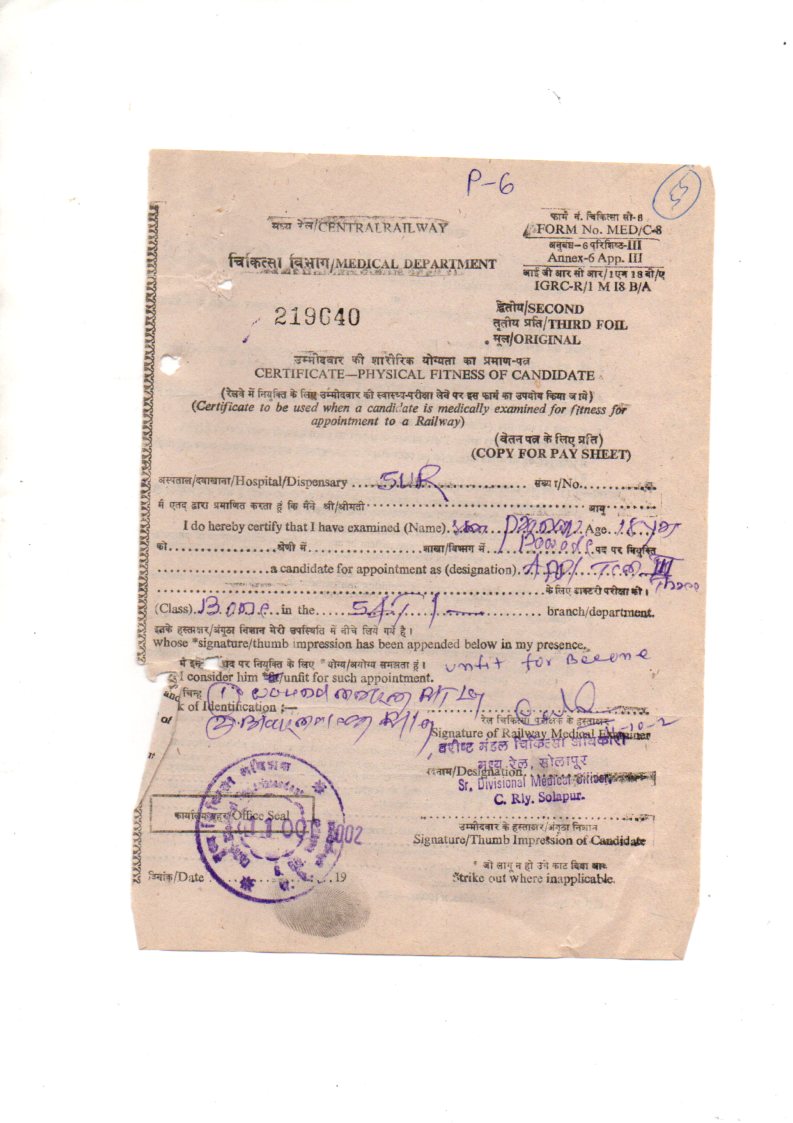 P-6
5
मध्य रेल/CENTRALRAILWAY
फार्म नं. चिकित्सा सी-8
FORM No. MED/C-8
अनुबंध-6 परिशिष्ठ-III
Annex-6 App. III
चिकित्सा विभाग/MEDICAL DEPARTMENT
आई जी आर सी आर/1 एम 18 बी/ए
IGRC-R/1 M I8 B/A
219640
द्वितीय/SECOND
तृतीय प्रति/THIRD FOIL
मूल/ORIGINAL
उम्मीदवार की शारीरिक योग्यता का प्रमाण-पत्र
CERTIFICATE—PHYSICAL FITNESS OF CANDIDATE
(रेलवे में नियुक्ति के लिए उम्मीदवार की स्वास्थ्य-परीक्षा लेने पर इस फार्म का उपयोग किया जाये)
(Certificate to be used when a candidate is medically examined for fitness for
appointment to a Railway)
(वेतन पत्र के लिए प्रति)
(COPY FOR PAY SHEET)
अस्पताल/दवाखाना/Hospital/Dispensary SUR संख्या/No.
मैं एतद द्वारा प्रमाणित करता हूं कि मैंने श्री/श्रीमती आयु
I do hereby certify that I have examined (Name). Age. 18
को श्रेणी में शाखा/विभाग में पद पर नियुक्ति
a candidate for appointment as (designation). III
के लिए डाक्टरी परीक्षा की।
(Class). in the branch/department.
इनके हस्ताक्षर/अंगूठा निशान मेरी उपस्थिति में नीचे लिये गये है।
whose *signature/thumb impression has been appended below in my presence.
मैं पद पर नियुक्ति के लिए *योग्य/अयोग्य समझता हूं। unfit for
I consider him /unfit for such appointment.
चिन्ह (1)
k of Identification :—
(2)
of
रेल चिकित्सा परीक्षक के हस्ताक्षर
Signature of Railway Medical Examiner
वरीष्ट मंडल चिकित्सा अधिकारी
मध्य रेल, सोलापूर
पदनाम/Designation
Sr. Divisional Medical Officer,
C. Rly. Solapur.
कार्यालय मुहर/Office Seal
2002
उम्मीदवार के हस्ताक्षर/अंगूठा निशान
Signature/Thumb Impression of Candidate
दिनांक/Date 19
* जो लागू न हो उसे काट दिया जाए
Strike out where inapplicable.